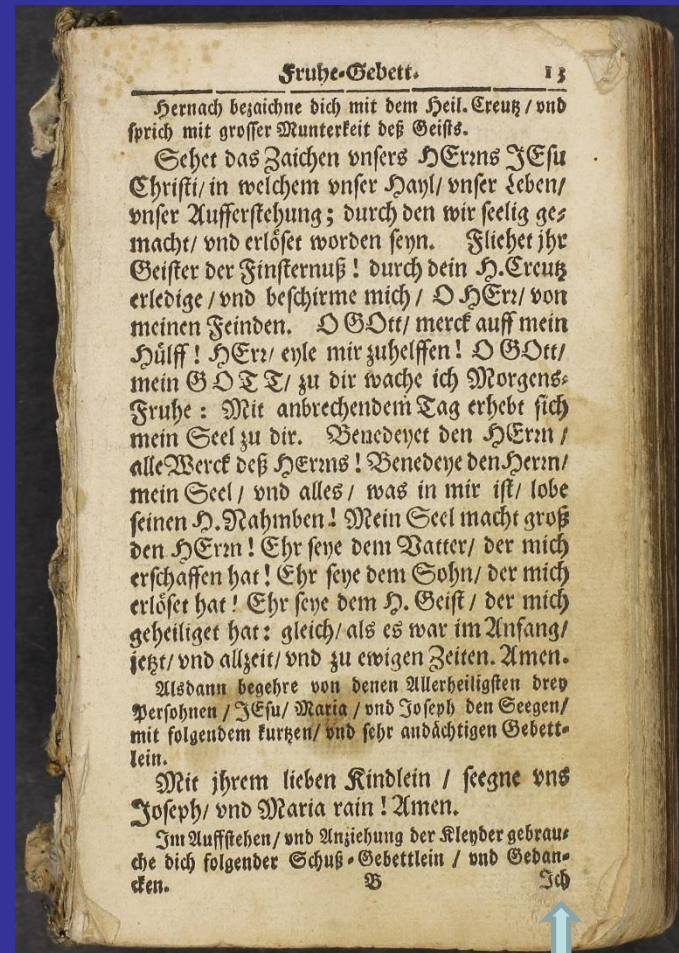 Fruhe-Gebett. 13
Hernach bezaichne dich mit dem Heil. Creutz / vnd
sprich mit grosser Munterkeit deß Geists.
Sehet das Zaichen vnsers HErrns JEsu
Christi/ in welchem vnser Hayl/ vnser Leben/
vnser Aufferstehung; durch den wir seelig ge-
macht/ vnd erlöset worden seyn. Fliehet jhr
Geister der Finsternuß! durch dein H.Creutz
erledige / vnd beschirme mich / O HErr/ von
meinen Feinden. O GOtt/ merck auff mein
Hülff! HErr/ eyle mir zuhelffen! O GOtt/
mein GOTT/ zu dir wache ich Morgens-
Fruhe: Mit anbrechendem Tag erhebt sich
mein Seel zu dir. Benedeyet den HErrn /
alle Werck deß HErrns! Benedeye den Herrn/
mein Seel / vnd alles / was in mir ist/ lobe
seinen H.Nahmben! Mein Seel macht groß
den HErrn! Ehr seye dem Vatter/ der mich
erschaffen hat! Ehr seye dem Sohn/ der mich
erlöset hat! Ehr seye dem H. Geist / der mich
geheiliget hat: gleich/ als es war im Anfang/
jetzt/ vnd allzeit/ vnd zu ewigen Zeiten. Amen.
Alsdann begehre von denen Allerheiligsten drey
Persohnen / JEsu/ Maria / vnd Joseph den Seegen/
mit folgendem kurtzen/ vnd sehr andächtigen Gebett-
lein.
Mit jhrem lieben Kindlein / seegne vns
Joseph/ vnd Maria rain! Amen.
Im Auffstehen/ vnd Anziehung der Kleyder gebrau-
che dich folgender Schuß-Gebettlein / vnd Gedan-
cken. B Ich